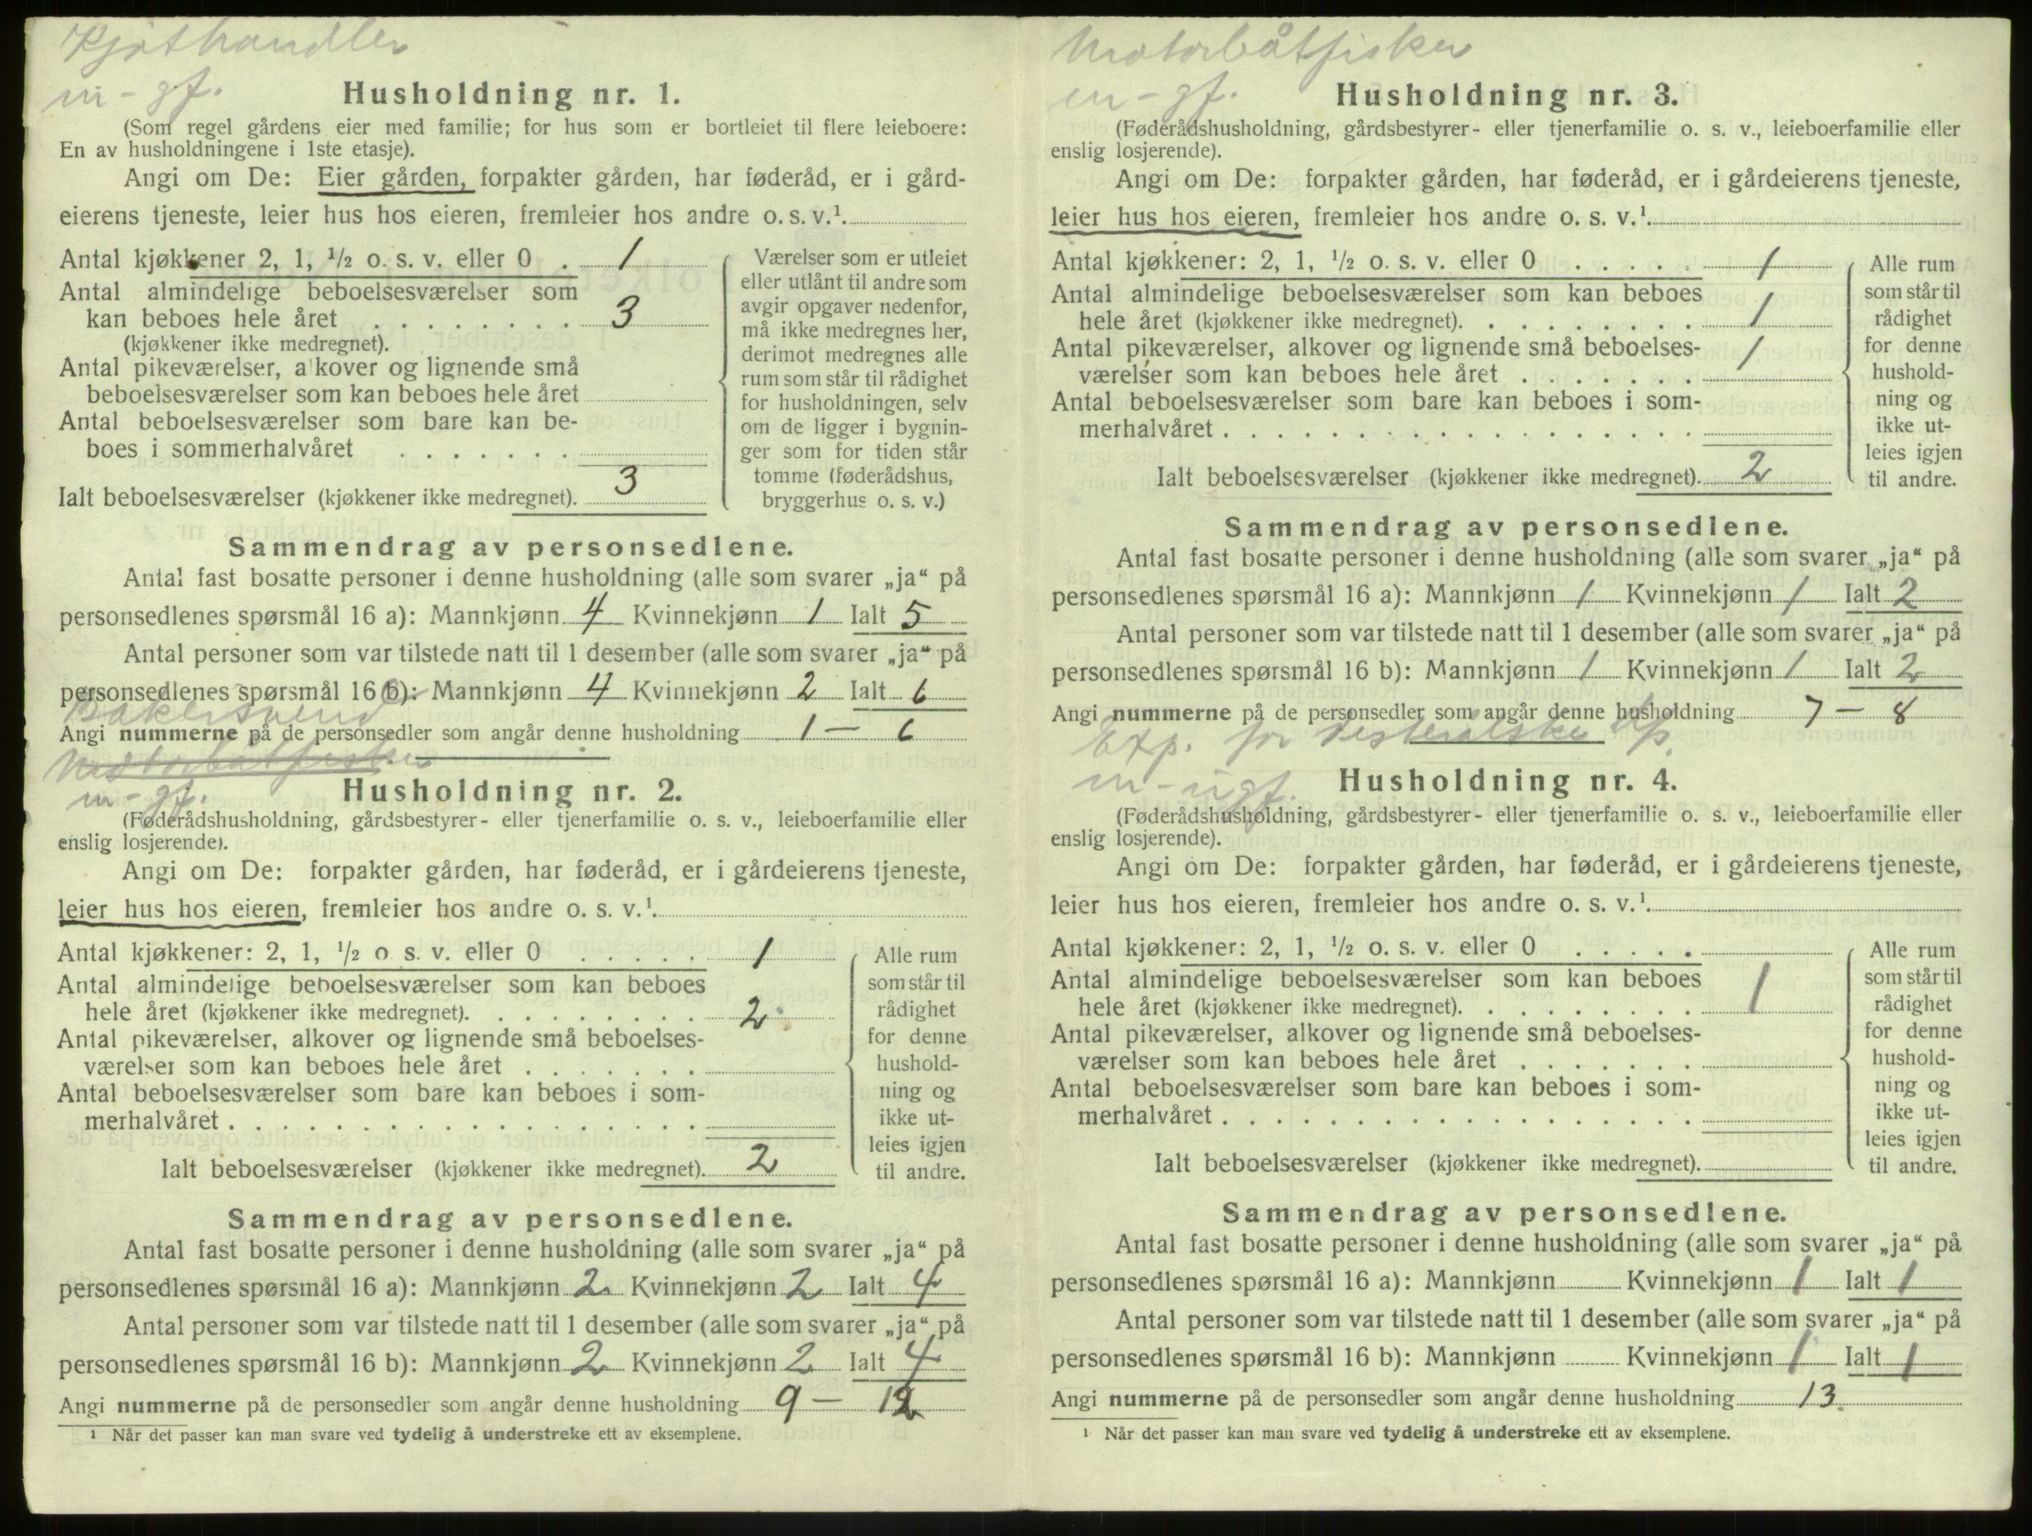 Kjøthandler
m - gf.
Husholdning nr. 1.
(Som regel gårdens eier med familie; for hus som er bortleiet til flere leieboere:
En av husholdningene i 1ste etasje).
Angi om De: Eier gården, forpakter gården, har føderåd, er i gård-
eierens tjeneste, leier hus hos eieren, fremleier hos andre o. s. v.¹.
Antal kjøkkener 2, 1, ½ o. s. v. eller 0 . 1
Antal almindelige beboelsesværelser som
kan beboes hele året . . . . . . . . 3
(kjøkkener ikke medregnet).
Antal pikeværelser, alkover og lignende små
beboelsesværelser som kan beboes hele året
Antal beboelsesværelser som bare kan be-
boes i sommerhalvåret . . . . . . .
Ialt beboelsesværelser (kjøkkener ikke medregnet). 3
Værelser som er utleiet
eller utlånt til andre som
avgir opgaver nedenfor,
må ikke medregnes her,
derimot medregnes alle
rum som står til rådighet
for husholdningen, selv
om de ligger i bygnin-
ger som for tiden står
tomme (føderådshus,
bryggerhus o. s. v.)
Sammendrag av personsedlene.
Antal fast bosatte personer i denne husholdning (alle som svarer „ja“ på
personsedlenes spørsmål 16 a): Mannkjønn 4 Kvinnekjønn 1 Ialt 5
Antal personer som var tilstede natt til 1 desember (alle som svarer „ja“ på
personsedlenes spørsmål 16 b): Mannkjønn 4 Kvinnekjønn 2 Ialt 6
Bakersvend
Angi nummerne på de personsedler som angår denne husholdning 1 — 6
Motorbåtfisker
m - gf.
Husholdning nr. 2.
(Føderådshusholdning, gårdsbestyrer- eller tjenerfamilie o. s. v., leieboerfamilie eller
enslig losjerende).
Angi om De: forpakter gården, har føderåd, er i gårdeierens tjeneste,
leier hus hos eieren, fremleier hos andre o. s. v.¹.
Antal kjøkkener: 2, 1, ½ o. s. v. eller 0 . . . . . 1
Antal almindelige beboelsesværelser som kan beboes
hele året (kjøkkener ikke medregnet). . . . . . . . . 2
Antal pikeværelser, alkover og lignende små beboelses-
værelser som kan beboes hele året . . . . . . .
Antal beboelsesværelser som bare kan beboes i som-
merhalvåret . . . . . . . . . . . . . . . . . .
Ialt beboelsesværelser (kjøkkener ikke medregnet). 2
Alle rum
som står til
rådighet
for denne
hushold-
ning og
ikke ut-
leies igjen
til andre.
Sammendrag av personsedlene.
Antal fast bosatte personer i denne husholdning (alle som svarer „ja“ på
personsedlenes spørsmål 16 a): Mannkjønn 2 Kvinnekjønn 2 Ialt 4
Antal personer som var tilstede natt til 1 desember (alle som svarer „ja“ på
personsedlenes spørsmål 16 b): Mannkjønn 2 Kvinnekjønn 2 Ialt 4
Angi nummerne på de personsedler som angår denne husholdning 9 — 12
¹ Når det passer kan man svare ved tydelig å understreke ett av eksemplene.
Motorbåtfisker
m - gf.
Husholdning nr. 3.
(Føderådshusholdning, gårdsbestyrer- eller tjenerfamilie o. s. v., leieboerfamilie eller
enslig losjerende).
Angi om De: forpakter gården, har føderåd, er i gårdeierens tjeneste,
leier hus hos eieren, fremleier hos andre o. s. v.¹.
Antal kjøkkener: 2, 1, ½ o. s. v. eller 0 . . . . . 1
Antal almindelige beboelsesværelser som kan beboes
hele året (kjøkkener ikke medregnet). . . . . . . . . 1
Antal pikeværelser, alkover og lignende små beboelses-
værelser som kan beboes hele året . . . . . . . 1
Antal beboelsesværelser som bare kan beboes i som-
merhalvåret . . . . . . . . . . . . . . . . . .
Ialt beboelsesværelser (kjøkkener ikke medregnet). 2
Alle rum
som står til
rådighet
for denne
hushold-
ning og
ikke ut-
leies igjen
til andre.
Sammendrag av personsedlene.
Antal fast bosatte personer i denne husholdning (alle som svarer „ja“ på
personsedlenes spørsmål 16 a): Mannkjønn 1 Kvinnekjønn 1 Ialt 2
Antal personer som var tilstede natt til 1 desember (alle som svarer „ja“ på
personsedlenes spørsmål 16 b): Mannkjønn 1 Kvinnekjønn 1 Ialt 2
Angi nummerne på de personsedler som angår denne husholdning 7 — 8
Exp. for Vesterålske dp.
m - ugf.
Husholdning nr. 4.
(Føderådshusholdning, gårdsbestyrer- eller tjenerfamilie o. s. v., leieboerfamilie eller
enslig losjerende).
Angi om De: forpakter gården, har føderåd, er i gårdeierens tjeneste,
leier hus hos eieren, fremleier hos andre o. s. v.¹.
Antal kjøkkener: 2, 1, ½ o. s. v. eller 0 . . . . .
Antal almindelige beboelsesværelser som kan beboes
hele året (kjøkkener ikke medregnet). . . . . . . . . 1
Antal pikeværelser, alkover og lignende små beboelses-
værelser som kan beboes hele året . . . . . . .
Antal beboelsesværelser som bare kan beboes i som-
merhalvåret . . . . . . . . . . . . . . . . . .
Ialt beboelsesværelser (kjøkkener ikke medregnet).
Alle rum
som står til
rådighet
for denne
hushold-
ning og
ikke ut-
leies igjen
til andre.
Sammendrag av personsedlene.
Antal fast bosatte personer i denne husholdning (alle som svarer „ja“ på
personsedlenes spørsmål 16 a): Mannkjønn Kvinnekjønn 1 Ialt 1
Antal personer som var tilstede natt til 1 desember (alle som svarer „ja“ på
personsedlenes spørsmål 16 b): Mannkjønn Kvinnekjønn 1 Ialt 1
Angi nummerne på de personsedler som angår denne husholdning 13
¹ Når det passer kan man svare ved tydelig å understreke ett av eksemplene.